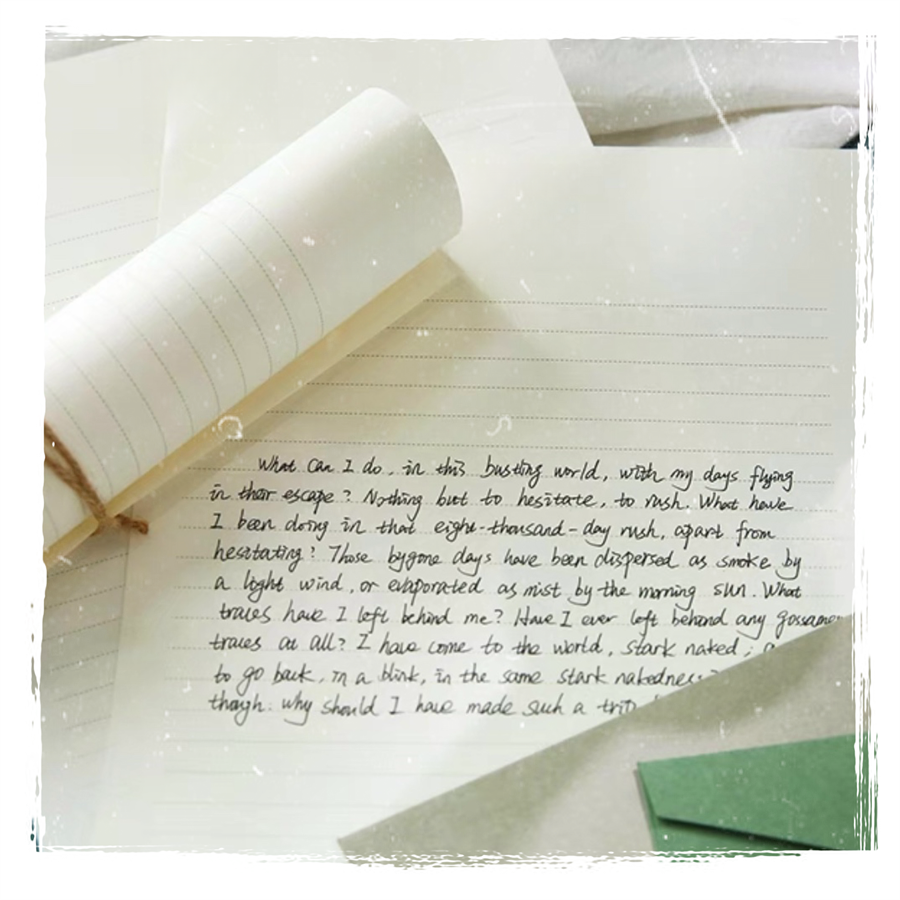 What can I do, in this bustling world, with my days flying
in their escape? Nothing but to hesitate, to rush. What have
I been doing in that eight-thousand-day rush, apart from
hesitating? Those bygone days have been dispersed as smoke by
a light wind, or evaporated as mist by the morning sun. What
traces have I left behind me? Have I ever left behind any gossamer
traces at all? I have come to the world, stark naked;
to go back, in a blink, in the same stark nakedness
though: why should I have made such a trip